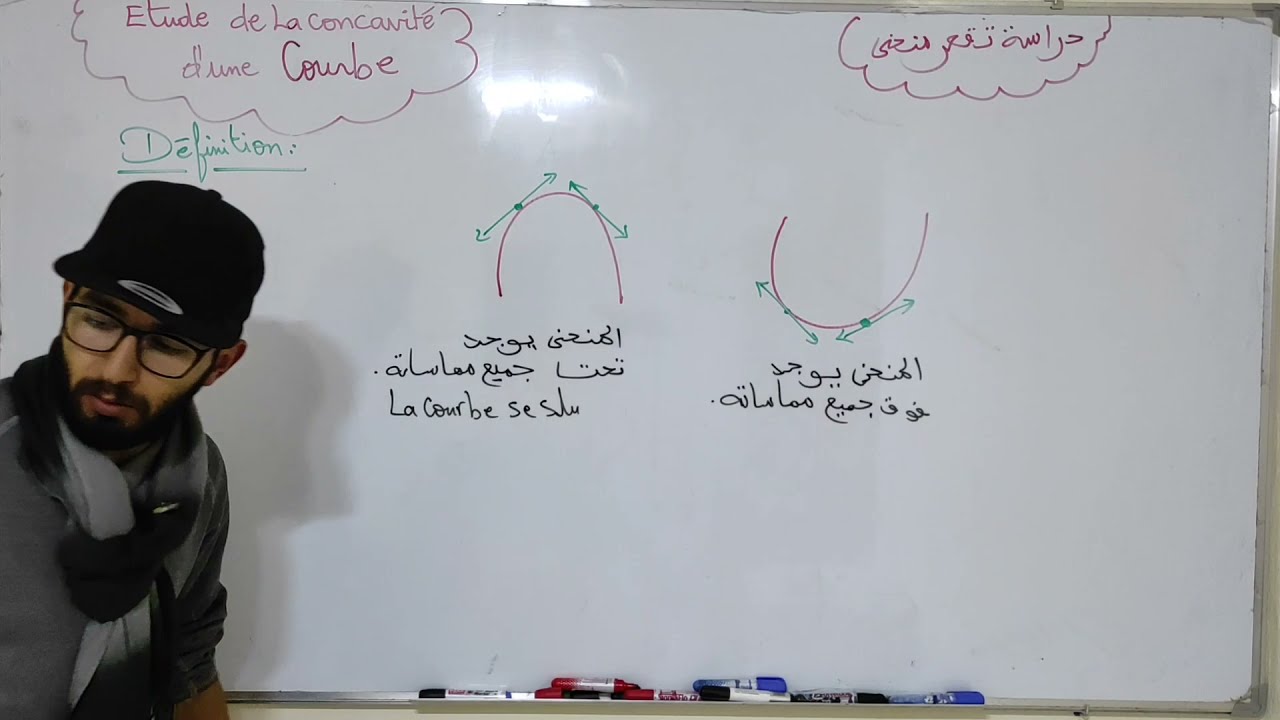 Etude de La concavité
d'une Courbe
دراسة تقعر منحنى
Définition:
المنحنى يوجد
تحت جميع مماساته.
La courbe se
المنحنى يوجد
فوق جميع مماساته.